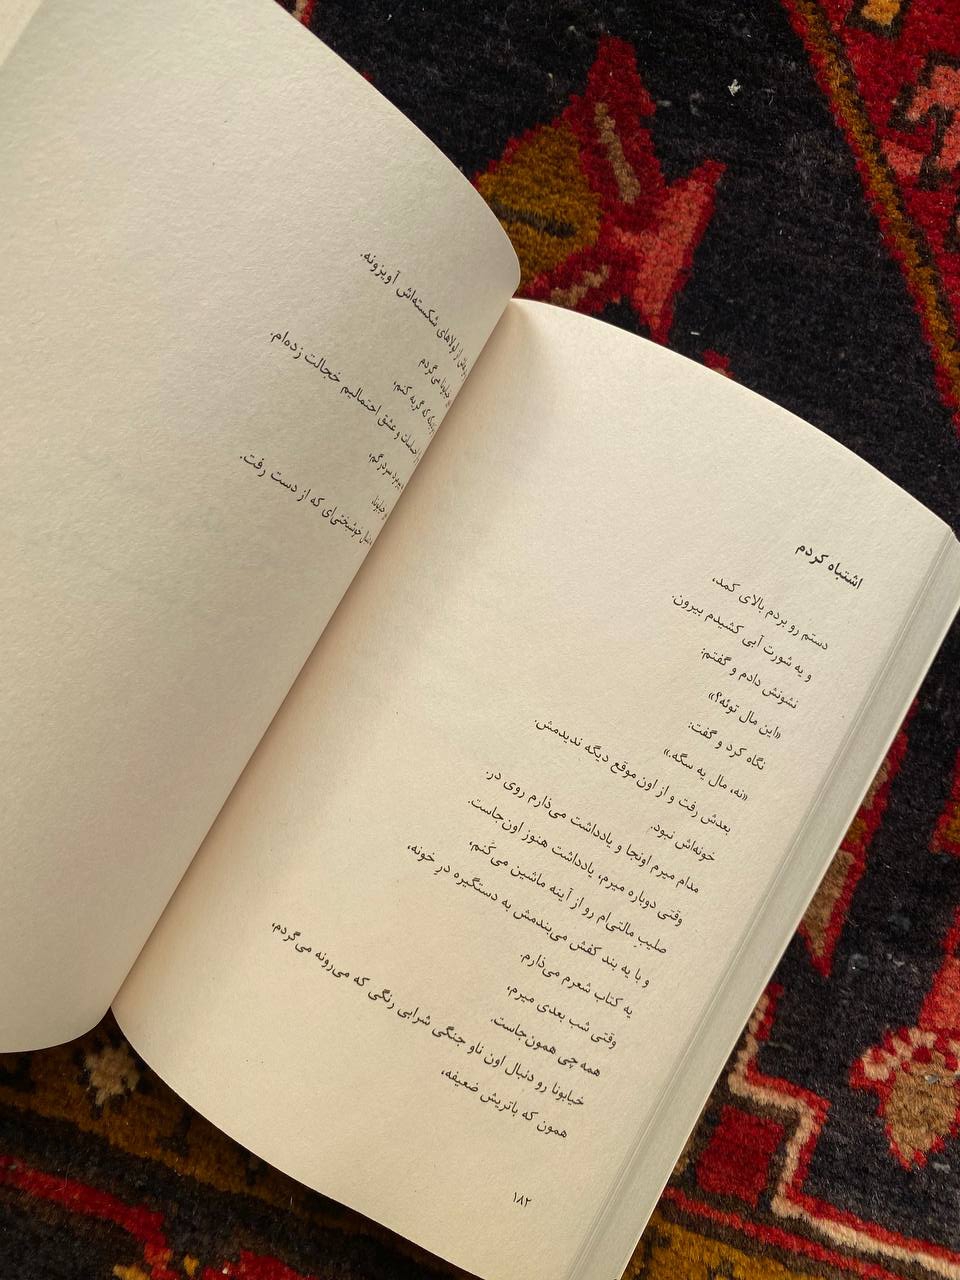 اشتباه کردم
دستم رو بردم بالای کمد،
و یه شورت آبی کشیدم بیرون.
نشونش دادم و گفتم:
«این مال توئه؟»
نگاه کرد و گفت:
«نه، مال یه سگه.»
بعدش رفت و از اون موقع دیگه ندیدمش.
خونه‌اش نبود.
مدام میرم اونجا و یادداشت می‌ذارم روی در.
وقتی دوباره میرم، یادداشت هنوز اون‌جاست.
صلیبِ مالتی‌ام رو از آینه ماشین می‌کَنم،
و با یه بند کفش می‌بندمش به دستگیره درِ خونه،
یه کتاب شعرم می‌ذارم.
وقتی شب بعدی میرم،
همه چی همون‌جاست.
خیابونا رو دنبال اون ناو جنگی شرابی رنگی که می‌رونه می‌گردم،
همون که باتریش ضعیفه،
۱۸۲
از لولاهای شکسته‌اش آویزونه.
می‌گردم
که گریه کنم،
و عشق احتمالیم خجالت زده‌ام.
سردرگم،
خوشبختی‌ای که از دست رفت.